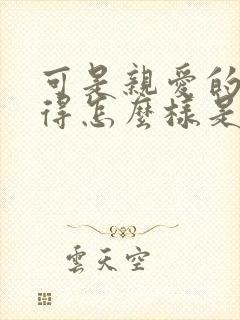 可是親愛的
得怎麼樣是
雲天空